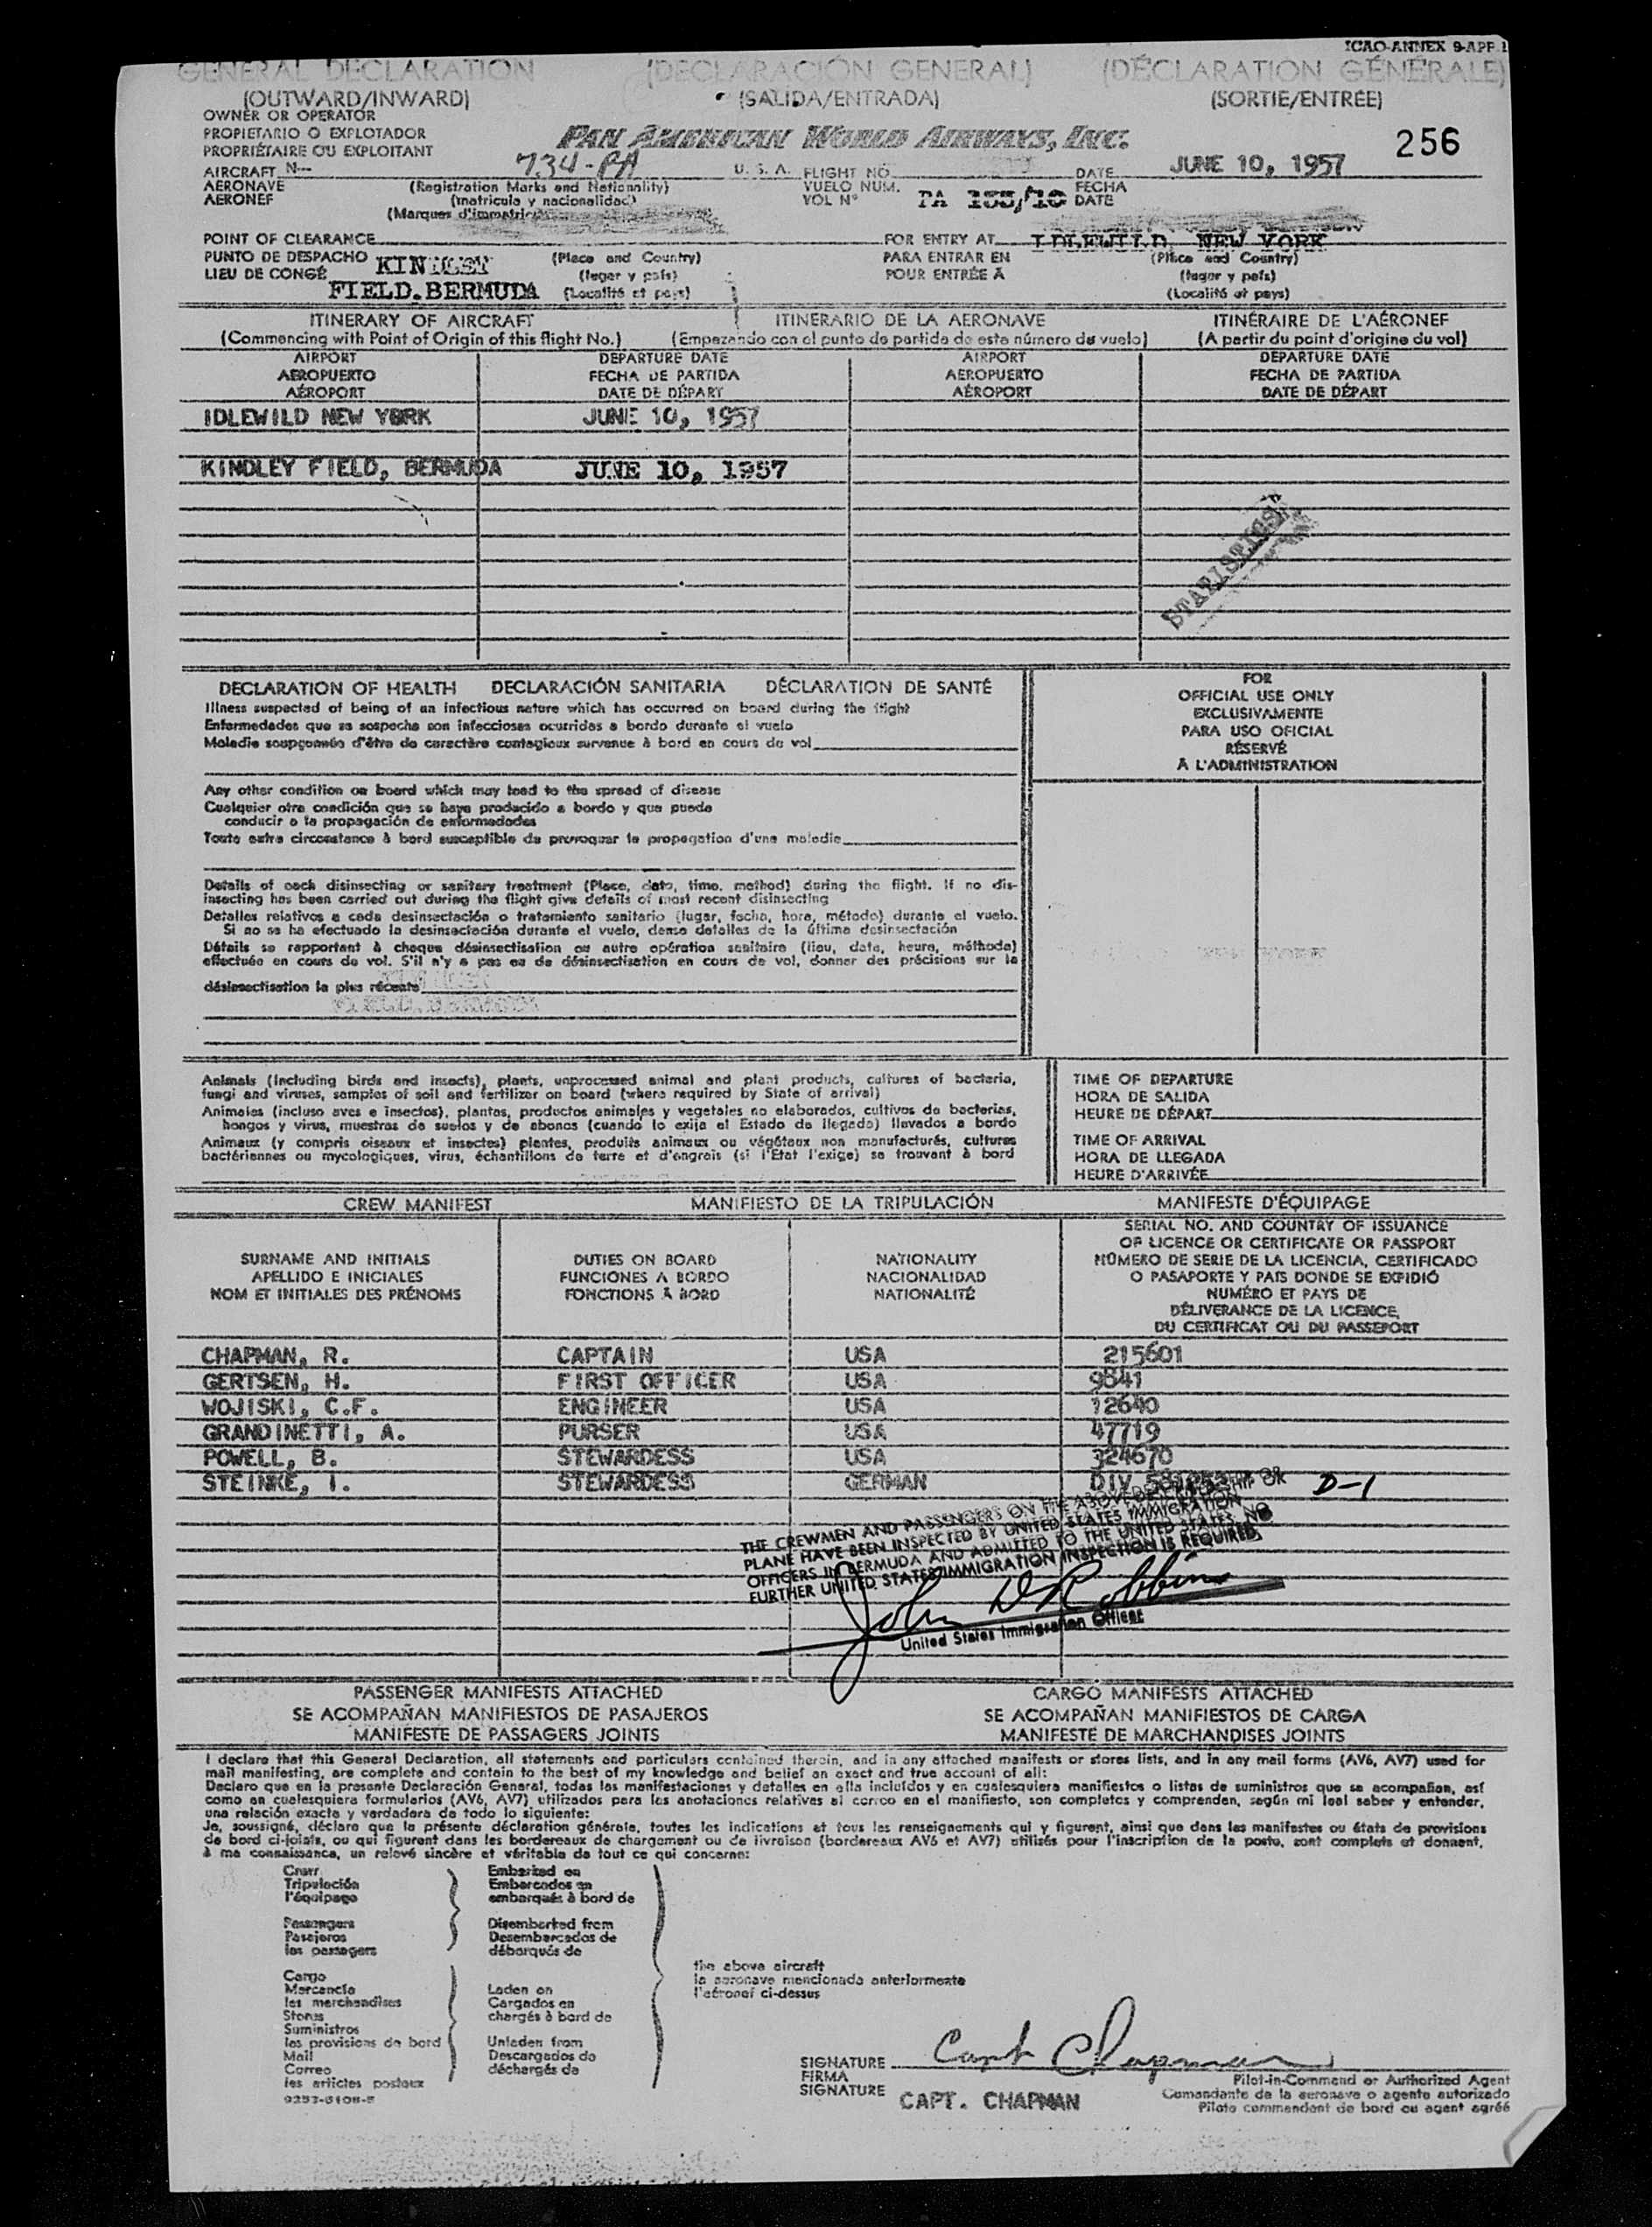 ICAO-ANNEX 9-APP. 1
GENERAL DECLARATION (DECLARACIÓN GENERAL) (DÉCLARATION GÉNÉRALE)
(OUTWARD/INWARD) (SALIDA/ENTRADA) (SORTIE/ENTRÉE)
OWNER OR OPERATOR
PROPIETARIO O EXPLOTADOR
PROPRIÉTAIRE OU EXPLOITANT
PAN AMERICAN WORLD AIRWAYS, INC.
256
AIRCRAFT N— 734-PA U. S. A. FLIGHT NO. DATE JUNE 10, 1957
AERONAVE (Registration Marks and Nationality) VUELO NUM. FECHA
AERONEF (matricula y nacionalidad) VOL Nº PA 155/10 DATE
(Marques d'immatric
POINT OF CLEARANCE FOR ENTRY AT IDLEWILD, NEW YORK
PUNTO DE DESPACHO (Place and Country) PARA ENTRAR EN (Place and Country)
LIEU DE CONGÉ (lugar y país) POUR ENTRÉE À (lugar y país)
FIELD.BERMUDA (Localité et pays) (Localité et pays)
ITINERARY OF AIRCRAFT ITINERARIO DE LA AERONAVE ITINÉRAIRE DE L'AÉRONEF
(Commencing with Point of Origin of this flight No.) (Empezando con el punto de partida de este número de vuelo) (A partir du point d'origine du vol)
AIRPORT DEPARTURE DATE AIRPORT DEPARTURE DATE
AEROPUERTO FECHA DE PARTIDA AEROPUERTO FECHA DE PARTIDA
AÉROPORT DATE DE DÉPART AÉROPORT DATE DE DÉPART
IDLEWILD NEW YORK JUNE 10, 1957
KINDLEY FIELD, BERMUDA JUNE 10, 1957
STATISTICS
DECLARATION OF HEALTH DECLARACIÓN SANITARIA DÉCLARATION DE SANTÉ
Illness suspected of being of an infectious nature which has occurred on board during the flight
Enfermedades que se sospecha son infecciosas ocurridas a bordo durante el vuelo
Maladie soupçonnée d'être de caractère contagieux survenue à bord en cours de vol
FOR
OFFICIAL USE ONLY
EXCLUSIVAMENTE
PARA USO OFICIAL
RÉSERVÉ
À L'ADMINISTRATION
Any other condition on board which may lead to the spread of disease
Cualquier otra condición que se haya producido a bordo y que pueda
conducir a la propagación de enfermedades
Toute autre circonstance à bord susceptible de provoquer la propagation d'une maladie
Details of each disinsecting or sanitary treatment (Place, date, time, method) during the flight. If no dis-
insecting has been carried out during the flight give details of most recent disinsecting
Detalles relativos a cada desinsectación o tratamiento sanitario (lugar, fecha, hora, método) durante el vuelo.
Si no se ha efectuado la desinsectación durante el vuelo, dense detalles de la última desinsectación
Détails se rapportant à chaque désinsectisation ou autre opération sanitaire (lieu, date, heure, méthode)
effectuée en cours de vol. S'il n'y a pas eu de désinsectisation en cours de vol, donner des précisions sur la
désinsectisation la plus récente
Animals (including birds and insects), plants, unprocessed animal and plant products, cultures of bacteria,
fungi and viruses, samples of soil and fertilizer on board (where required by State of arrival)
Animales (incluso aves e insectos), plantas, productos animales y vegetales no elaborados, cultivos de bacterias,
hongos y virus, muestras de suelos y de abonos (cuando lo exija el Estado de llegada) llevados a bordo
Animaux (y compris oiseaux et insectes) plantes, produits animaux ou végétaux non manufacturés, cultures
bactériennes ou mycologiques, virus, échantillons de terre et d'engrais (si l'Etat l'exige) se trouvant à bord
TIME OF DEPARTURE
HORA DE SALIDA
HEURE DE DÉPART
TIME OF ARRIVAL
HORA DE LLEGADA
HEURE D'ARRIVÉE
CREW MANIFEST MANIFIESTO DE LA TRIPULACIÓN MANIFESTE D'ÉQUIPAGE
SURNAME AND INITIALS
APELLIDO E INICIALES
NOM ET INITIALES DES PRÉNOMS
DUTIES ON BOARD
FUNCIONES A BORDO
FONCTIONS À BORD
NATIONALITY
NACIONALIDAD
NATIONALITÉ
SERIAL NO. AND COUNTRY OF ISSUANCE
OF LICENCE OR CERTIFICATE OR PASSPORT
NÚMERO DE SERIE DE LA LICENCIA, CERTIFICADO
O PASAPORTE Y PAÍS DONDE SE EXPIDIÓ
NUMÉRO ET PAYS DE
DÉLIVERANCE DE LA LICENCE,
DU CERTIFICAT OU DU PASSEPORT
CHAPMAN, R. CAPTAIN USA 215601
GERTSEN, H. FIRST OFFICER USA 9841
WOJISKI, C.F. ENGINEER USA 12640
GRANDINETTI, A. PURSER USA 47719
POWELL, B. STEWARDESS USA 324670
STEINKE, I. STEWARDESS GERMAN DIV D-1
THE CREWMEN AND PASSENGERS ON THE ABOVE DESCRIBED SHIP OR
PLANE HAVE BEEN INSPECTED BY UNITED STATES IMMIGRATION
OFFICERS IN BERMUDA AND ADMITTED TO THE UNITED STATES. NO
FURTHER UNITED STATES IMMIGRATION INSPECTION IS REQUIRED.
John D Robbins
United States Immigration Officer
PASSENGER MANIFESTS ATTACHED CARGO MANIFESTS ATTACHED
SE ACOMPAÑAN MANIFIESTOS DE PASAJEROS SE ACOMPAÑAN MANIFIESTOS DE CARGA
MANIFESTE DE PASSAGERS JOINTS MANIFESTE DE MARCHANDISES JOINTS
I declare that this General Declaration, all statements and particulars contained therein, and in any attached manifests or stores lists, and in any mail forms (AV6, AV7) used for
mail manifesting, are complete and contain to the best of my knowledge and belief an exact and true account of all:
Declaro que en la presente Declaración General, todas las manifestaciones y detalles en ella incluídos y en cualesquiera manifiestos o listas de suministros que se acompañan, así
como en cualesquiera formularios (AV6, AV7) utilizados para las anotaciones relativas al correo en el manifiesto, son completos y comprenden, según mi leal saber y entender,
una relación exacta y verdadera de todo lo siguiente:
Je, soussigné, déclare que la présente déclaration générale, toutes les indications et tous les renseignements qui y figurent, ainsi que dans les manifestes ou états de provisions
de bord ci-joints, ou qui figurent dans les bordereaux de chargement ou de livraison (bordereaux AV6 et AV7) utilisés pour l'inscription de la poste, sont complets et donnent,
à ma connaissance, un relevé sincère et véritable de tout ce qui concerne:
Crew Embarked on
Tripulación Embarcados en
l'équipage embarqués à bord de
Passengers Disembarked from
Pasajeros Desembarcados de
les passagers débarqués de
the above aircraft
la aeronave mencionada anteriormente
l'aéronef ci-dessus
Cargo
Mercancía Laden on
les marchandises Cargados en
Stores chargés à bord de
Suministros
les provisions de bord Unladen from
Mail Descargados de
Correo déchargés de
les articles postaux
SIGNATURE Capt Chapman
FIRMA Pilot-in-Command or Authorized Agent
SIGNATURE CAPT. CHAPMAN Comandante de la aeronave o agente autorizado
Pilote commandant de bord ou agent agréé